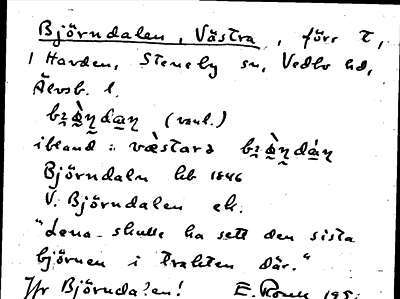 Björndalen, Västra, förr t,
i Harden, Steneby sn, Vedbo hd,
Älvsb. l.
(vanl.)
ibland: 
Björndaln hb 1846
V. Björndalen ek.
"Lena skulle ha sett den sista
björnen i trakten där."
Jfr Björnda?en! E. 195